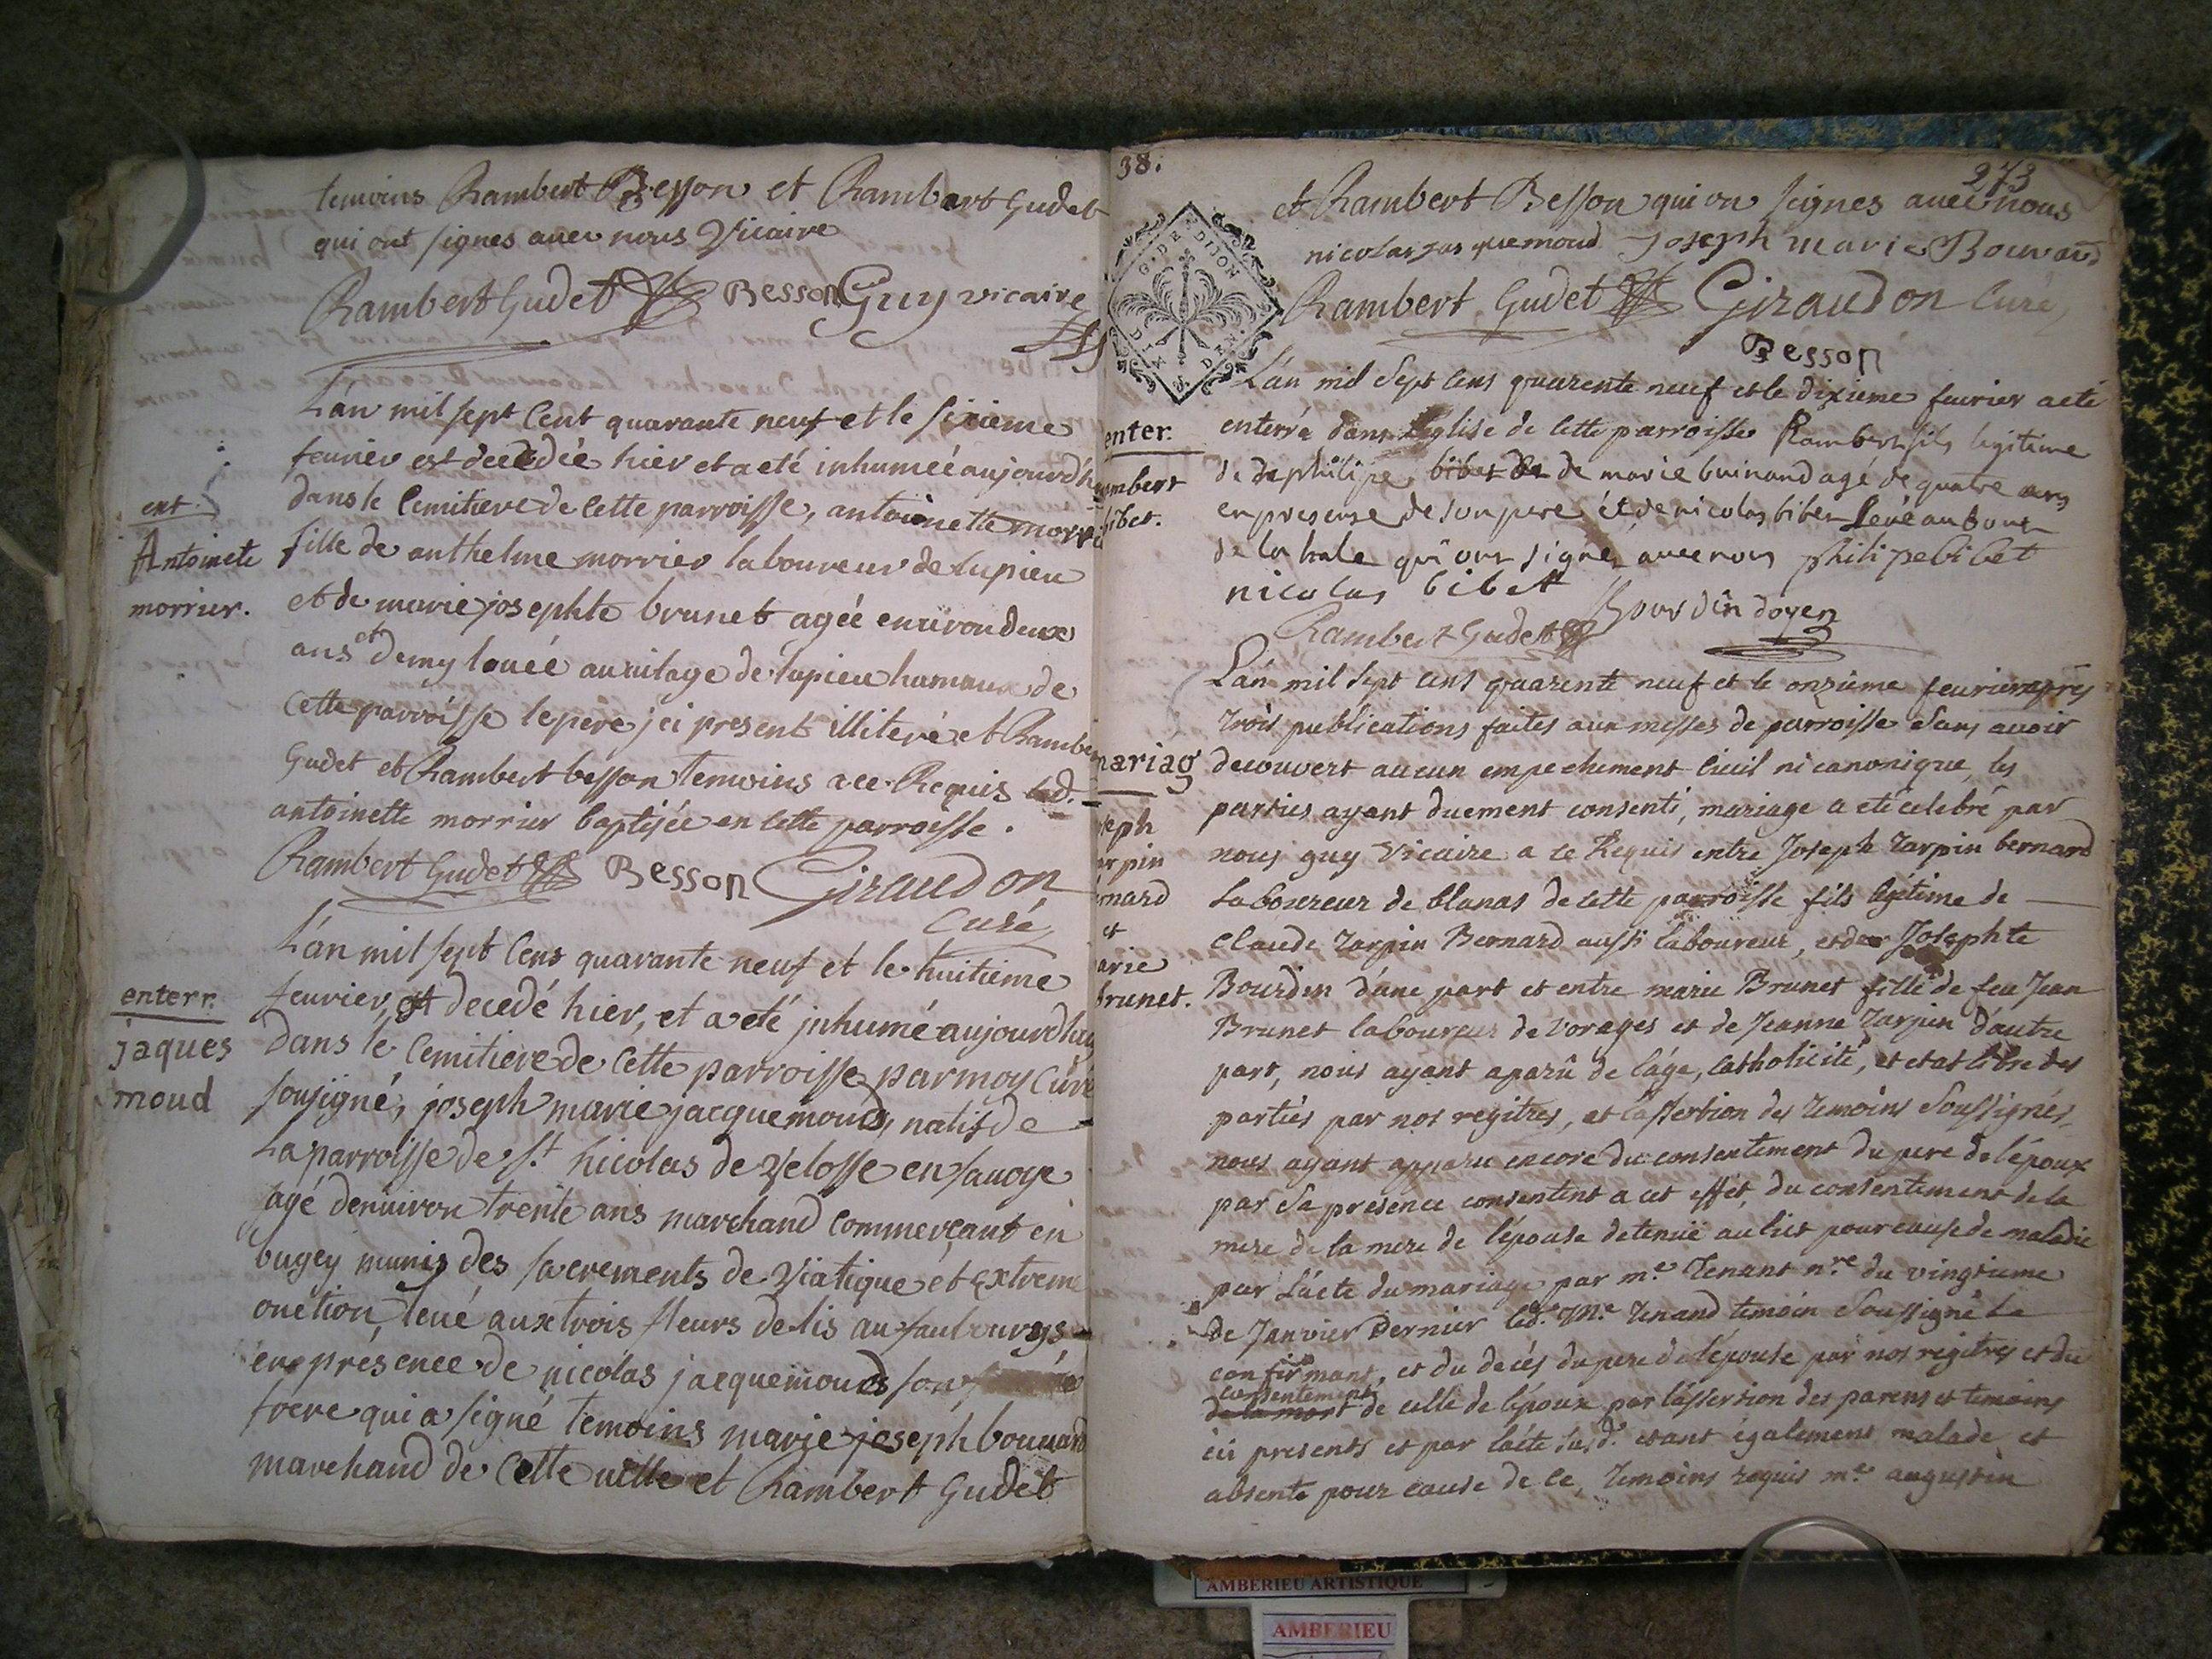 temoins Rambert Besson et Rambert Gudet
qui ont signes avec nous Vicaire
Rambert Gudet Besson Guy vicaire
L'an mil sept Cent quarante neuf et le sixieme
fevrier est decedée hier et a eté inhumeé aujourd'h
ent.
Antoinete
morrier.
dans le Cemitiere de Cette parroisse, antoinette morrie
fille de anthelme morrier laboureur de lupieu
et de marie josephte brunet agée environ deux
ans et demy lovée au vilage de lupieu hamaux de
Cette parroisse le pere jci present illiteré et Rambert
Gudet et Rambert besson temoins a ce Requis lad.
antoinette morrier baptisée en Cette parroisse.
Rambert Gudet Besson Giraudon
Curé
L'an mil sept Cens quarante neuf et le huitieme
enterr.
jaques
moud
fevrier, est decedé hier, et a eté jnhumé aujourdhuy
dans le Cemitiere de Cette parroisse par moy Curé
soussigné, joseph marie jacquemoud, natif de
La parroisse de St. Nicolas de Velosse en savoye
agé d'environ trente ans marchand Commerçant en
bugey munis des sacrements de Viatique et Extreme
onction, levé aux trois fleurs de lis au fauxbourgs,
en presence de nicolas jacquemoud son
frere qui a signé temoins marie joseph bouvard
marchand de Cette ville et Rambert Gudet
38.
273
et Rambert Besson qui on signes avec nous
nicolas jasquemoud Joseph marie Bouvard
G. D. DE DIJON
DIX DEN.
Rambert Gudet Giraudon Curé,
Besson
L'an mil sept Cens quarente neuf et le dixieme fevrier a eté
enter.
ambert
bibet.
enterré dans l'Eglise de Cette parroisse Rambert fils legitime
de philipe bibet de marie buinand agé de quatre ans
en presense de son pere et de nicolas bibet Levé au bout
de la hale qui ont signé avec nous philipe bibet
nicolas bibet
Rambert Gudet Bourdin doyen
L'an mil sept cens quarente neuf et le onzieme fevrier aprés
trois publications faites aux messes de parroisse sans avoir
mariag
seph
arpin
rnard
et
arie
brunet.
decouvert aucun empechement Civil ni canonique, les
parties ayant duement consenti, mariage a eté celebré par
nous guy Vicaire a ce Requis entre Joseph tarpin bernard
Laboureur de blanas de cette parroisse fils légitime de
Claude tarpin Bernard aussi laboureur, et de Josephte
Bourdin d'une part et entre marie Brunet fille de feu Jean
Brunet laboureur de vorages et de Jeanne Tarpin d'autre
part, nous ayant aparû de l'âge, Catholicité, et etat libre des
parties par nos regitres, et l'assertion des temoins soussignés,
nous ayant apparu encore du consentement du pere de l'époux
par sa presence consentent a cet effet, du consentement de la
mere de la mere de l'épouse detenuë au lict pour cause de maladie
par l'acte du mariage par me. Tenant nre. du vingtieme
de Janvier dernier led. Me. Tenand temoin soussigné Le
confirmant, et du decés du pere de l'épouse par nos regitres et du
consentement
de la mort de celle de l'époux par l'assertion des parens et temoins
ici presents et par l'acte susd. etant également malade et
absente pour cause de ce, temoins requis me. augustin
AMBERIEU ARTISTIQUE
AMBERIEU